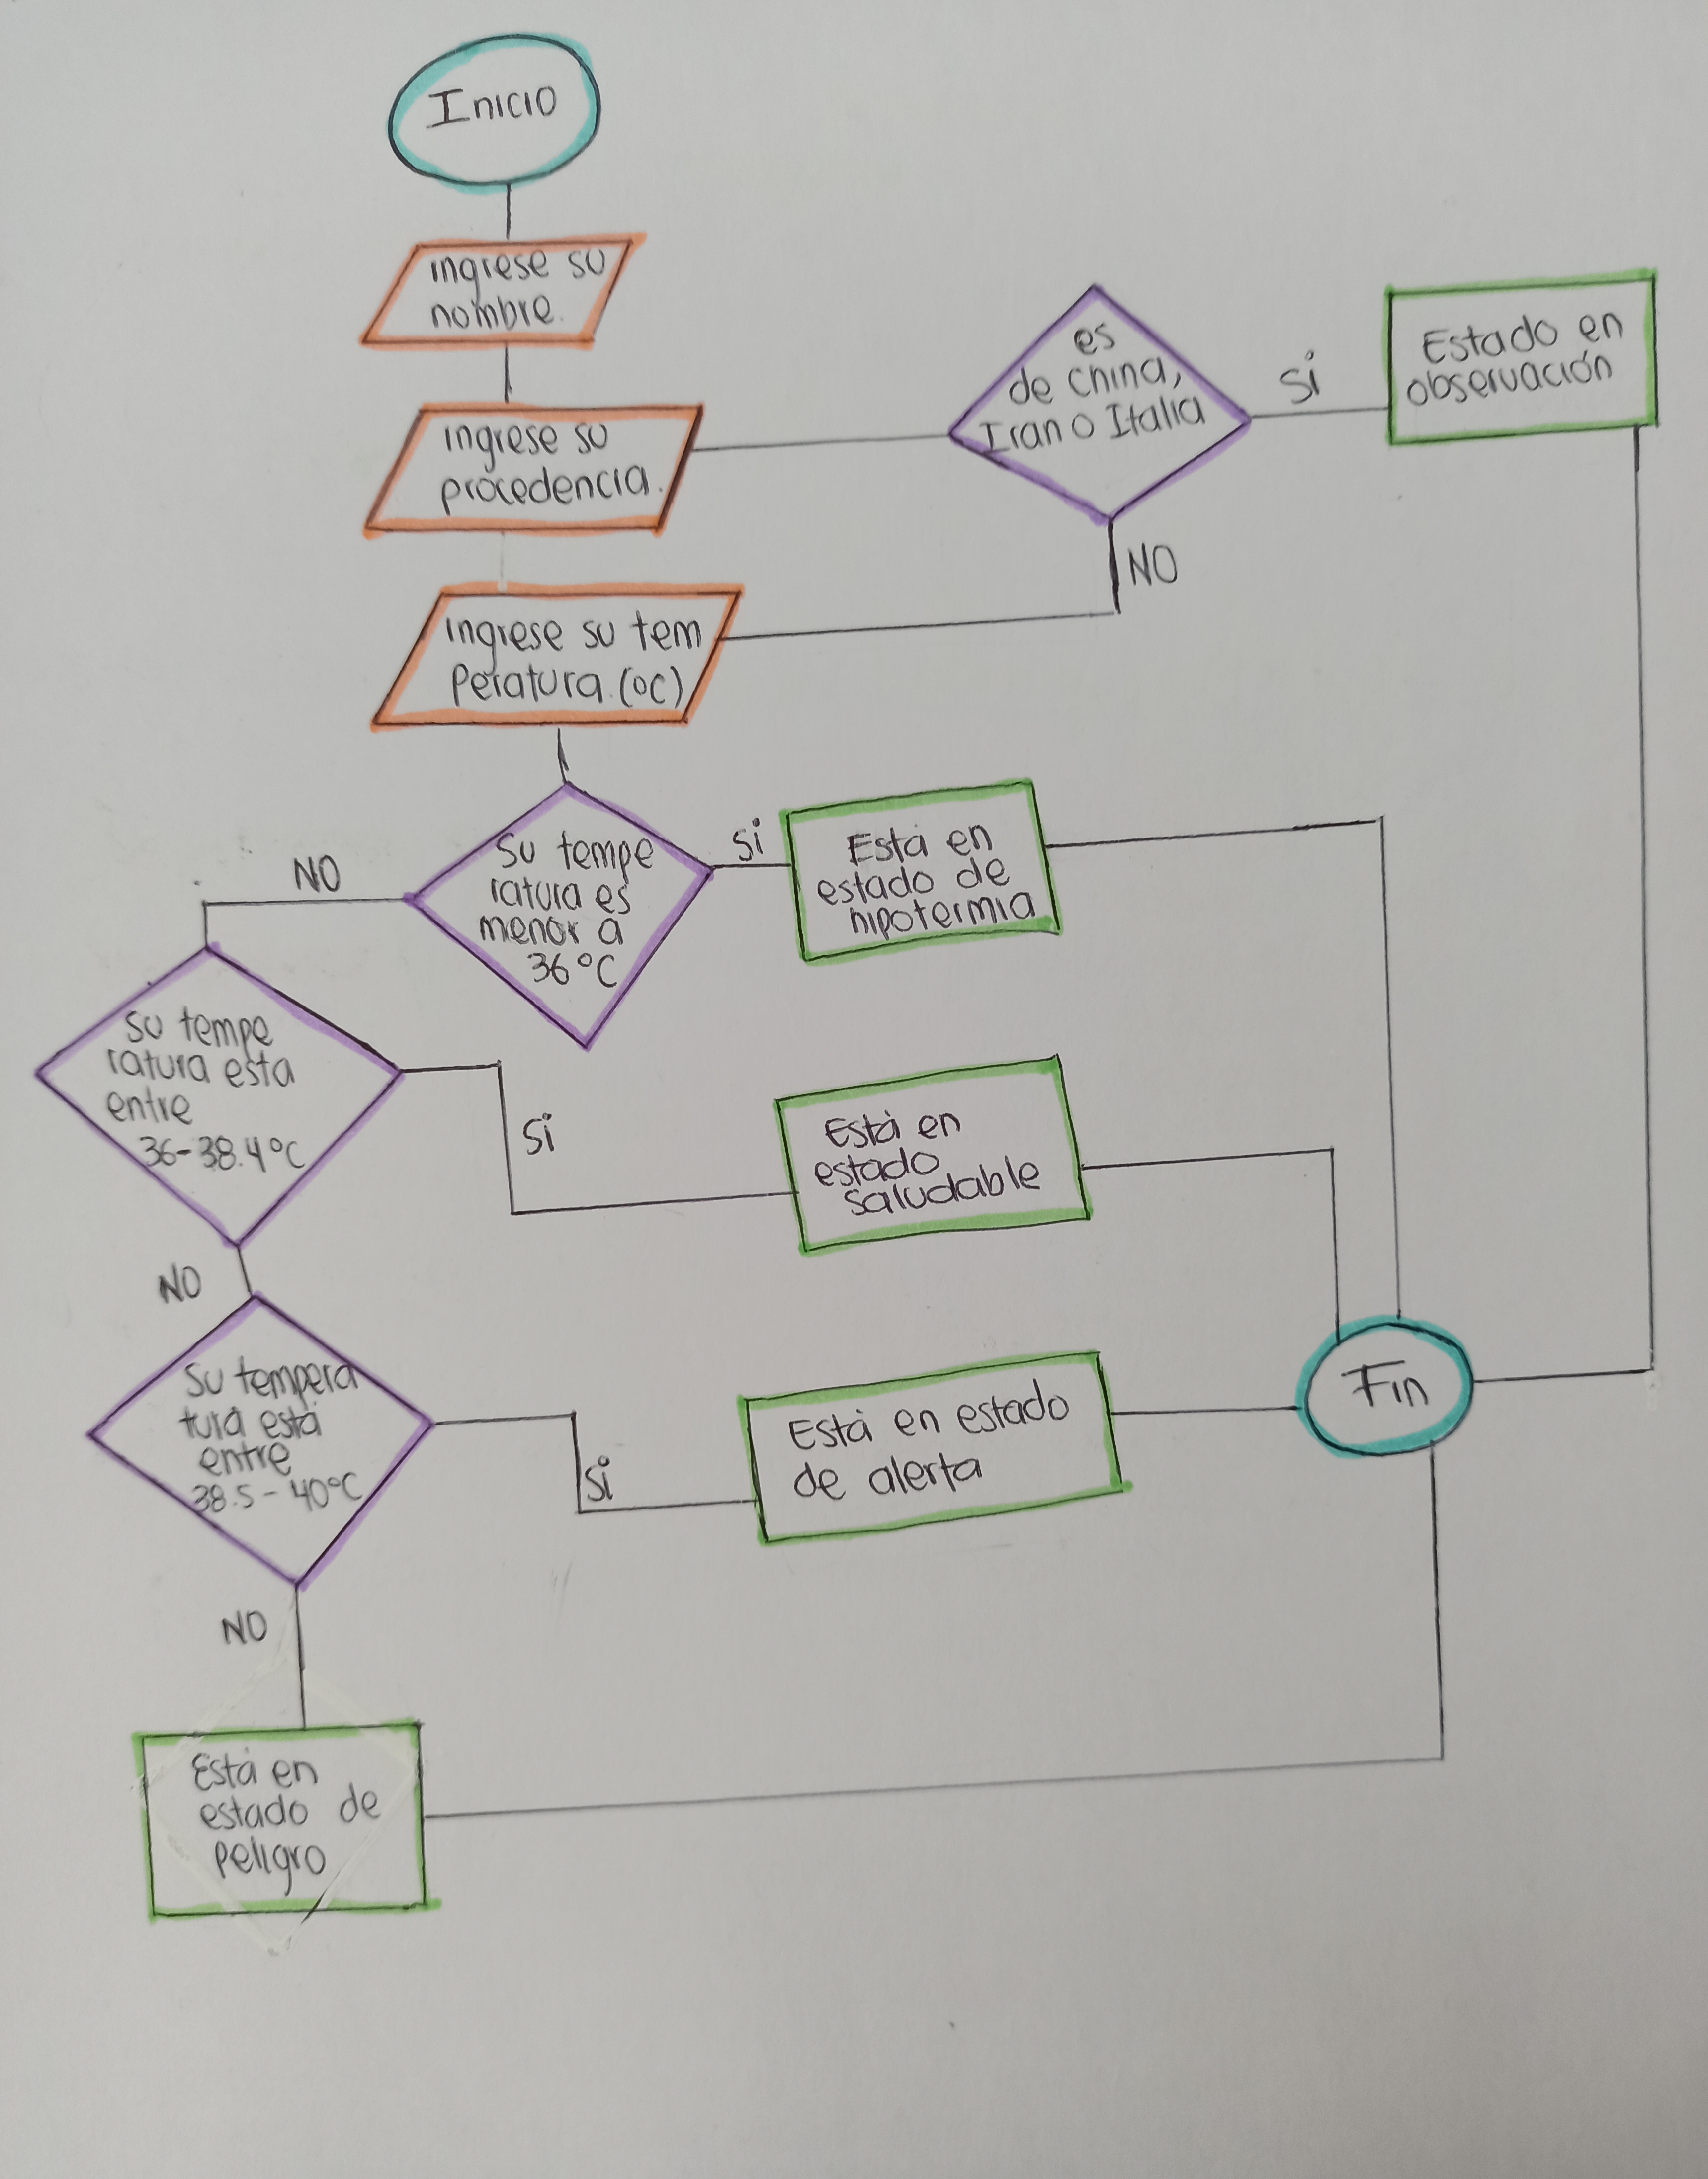 Inicio
ingrese su
nombre.
ingrese su
procedencia.
es
de china,
Iran o Italia
Si
Estado en
observación
NO
ingrese su tem
peratura.(ºc)
Su tempe
ratura es
menor a
36°C
Si
Está en
estado de
hipotermia
NO
Su tempe
ratura esta
entre
36-38.4°C
Si
Está en
estado
saludable
NO
Su tempera
tura está
entre
38.5-40°C
Si
Está en estado
de alerta
Fin
NO
Está en
estado de
peligro